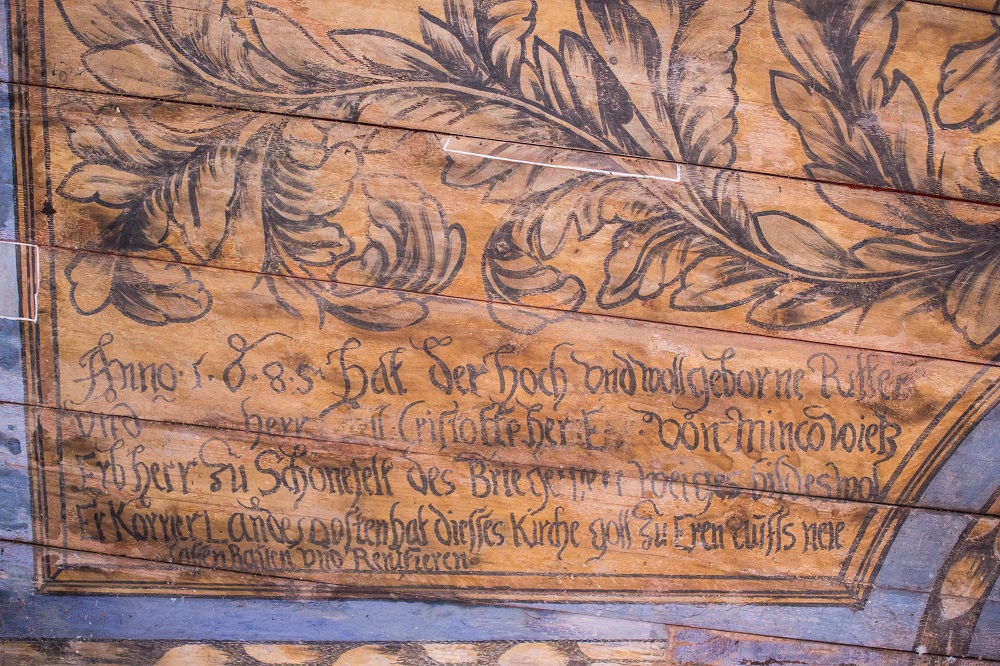 Anno · 1 · 6 · 8 · 5 · hat der hoch und wollgeborne Ritter
und herr Cristoffe her von Mincowietz
Erbherr zu Schönefelt des
Er Korner Landes dieses Kirche gott zu Eren auffs neie
lassen Bauen und Renofieren